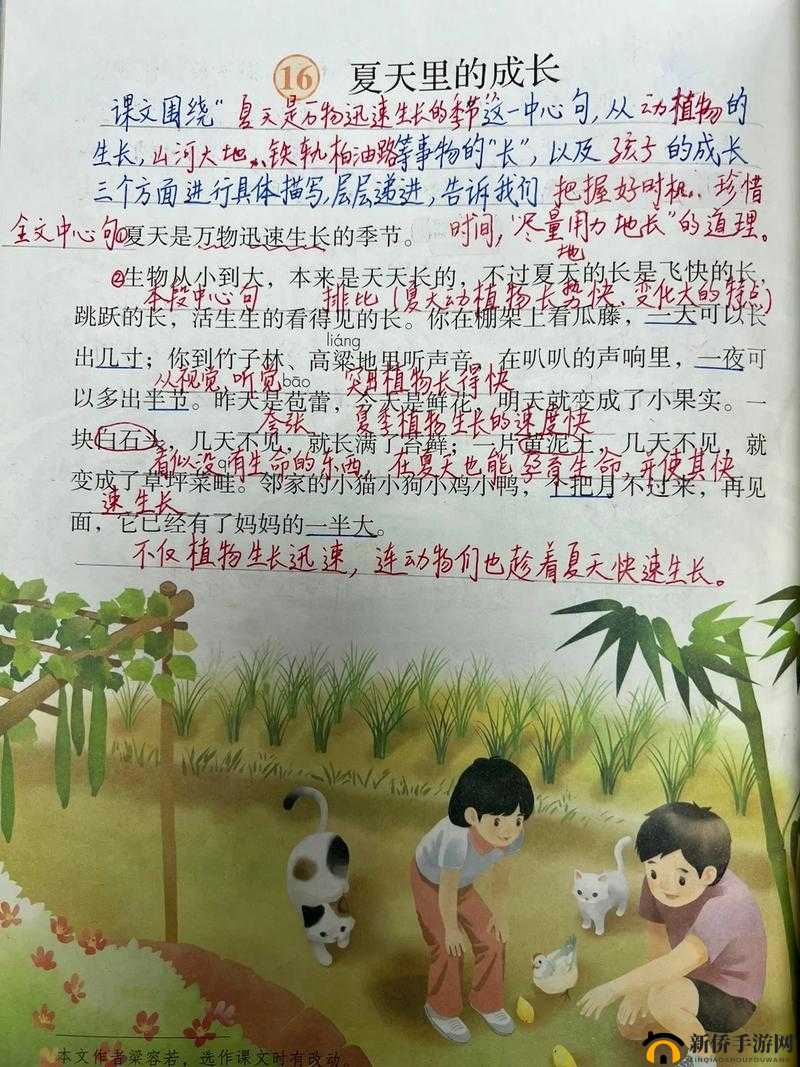 16 夏天里的成长
课文围绕“夏天是万物迅速生长的季节”这一中心句,从动植物的
生长,山河大地、铁轨柏油路等事物的“长”,以及孩子的成长
三个方面进行具体描写,层层递进,告诉我们把握好时机、珍惜
全文中心句①夏天是万物迅速生长的季节。 时间,“尽量用力地长”的道理。
地
②生物从小到大,本来是天天长的,不过夏天的长是飞快的长,
本段中心句 排比(夏天动植物长势快、变化大的特点)
跳跃的长,活生生的看得见的长。你在棚架上看瓜藤,一天可以长
liáng
出几寸;你到竹子林、高粱地里听声音,在叭叭的声响里,一夜可
从视觉 听觉 bāo 突出植物长得快
以多出半节。昨天是苞蕾,今天是鲜花,明天就变成了小果实。一
夸张 夏季植物生长的速度快
块白石头,几天不见,就长满了苔藓;一片黄泥土,几天不见,就
看似没有生命的东西,在夏天也能孕育生命,并使其快
变成了草坪菜畦。邻家的小猫小狗小鸡小鸭,个把月不过来,再见
速生长
面,它已经有了妈妈的一半大。
不仅植物生长迅速,连动物们也趁着夏天快速生长。
本文作者梁容若,选作课文时有改动。
新侨手游网
XINQIAOSHOUYOUWANG